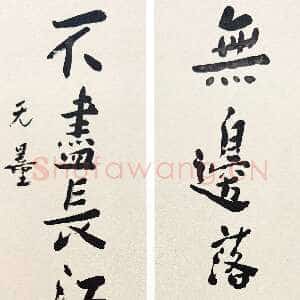 無邊落
不盡長江
无墨
Shufawang.CN